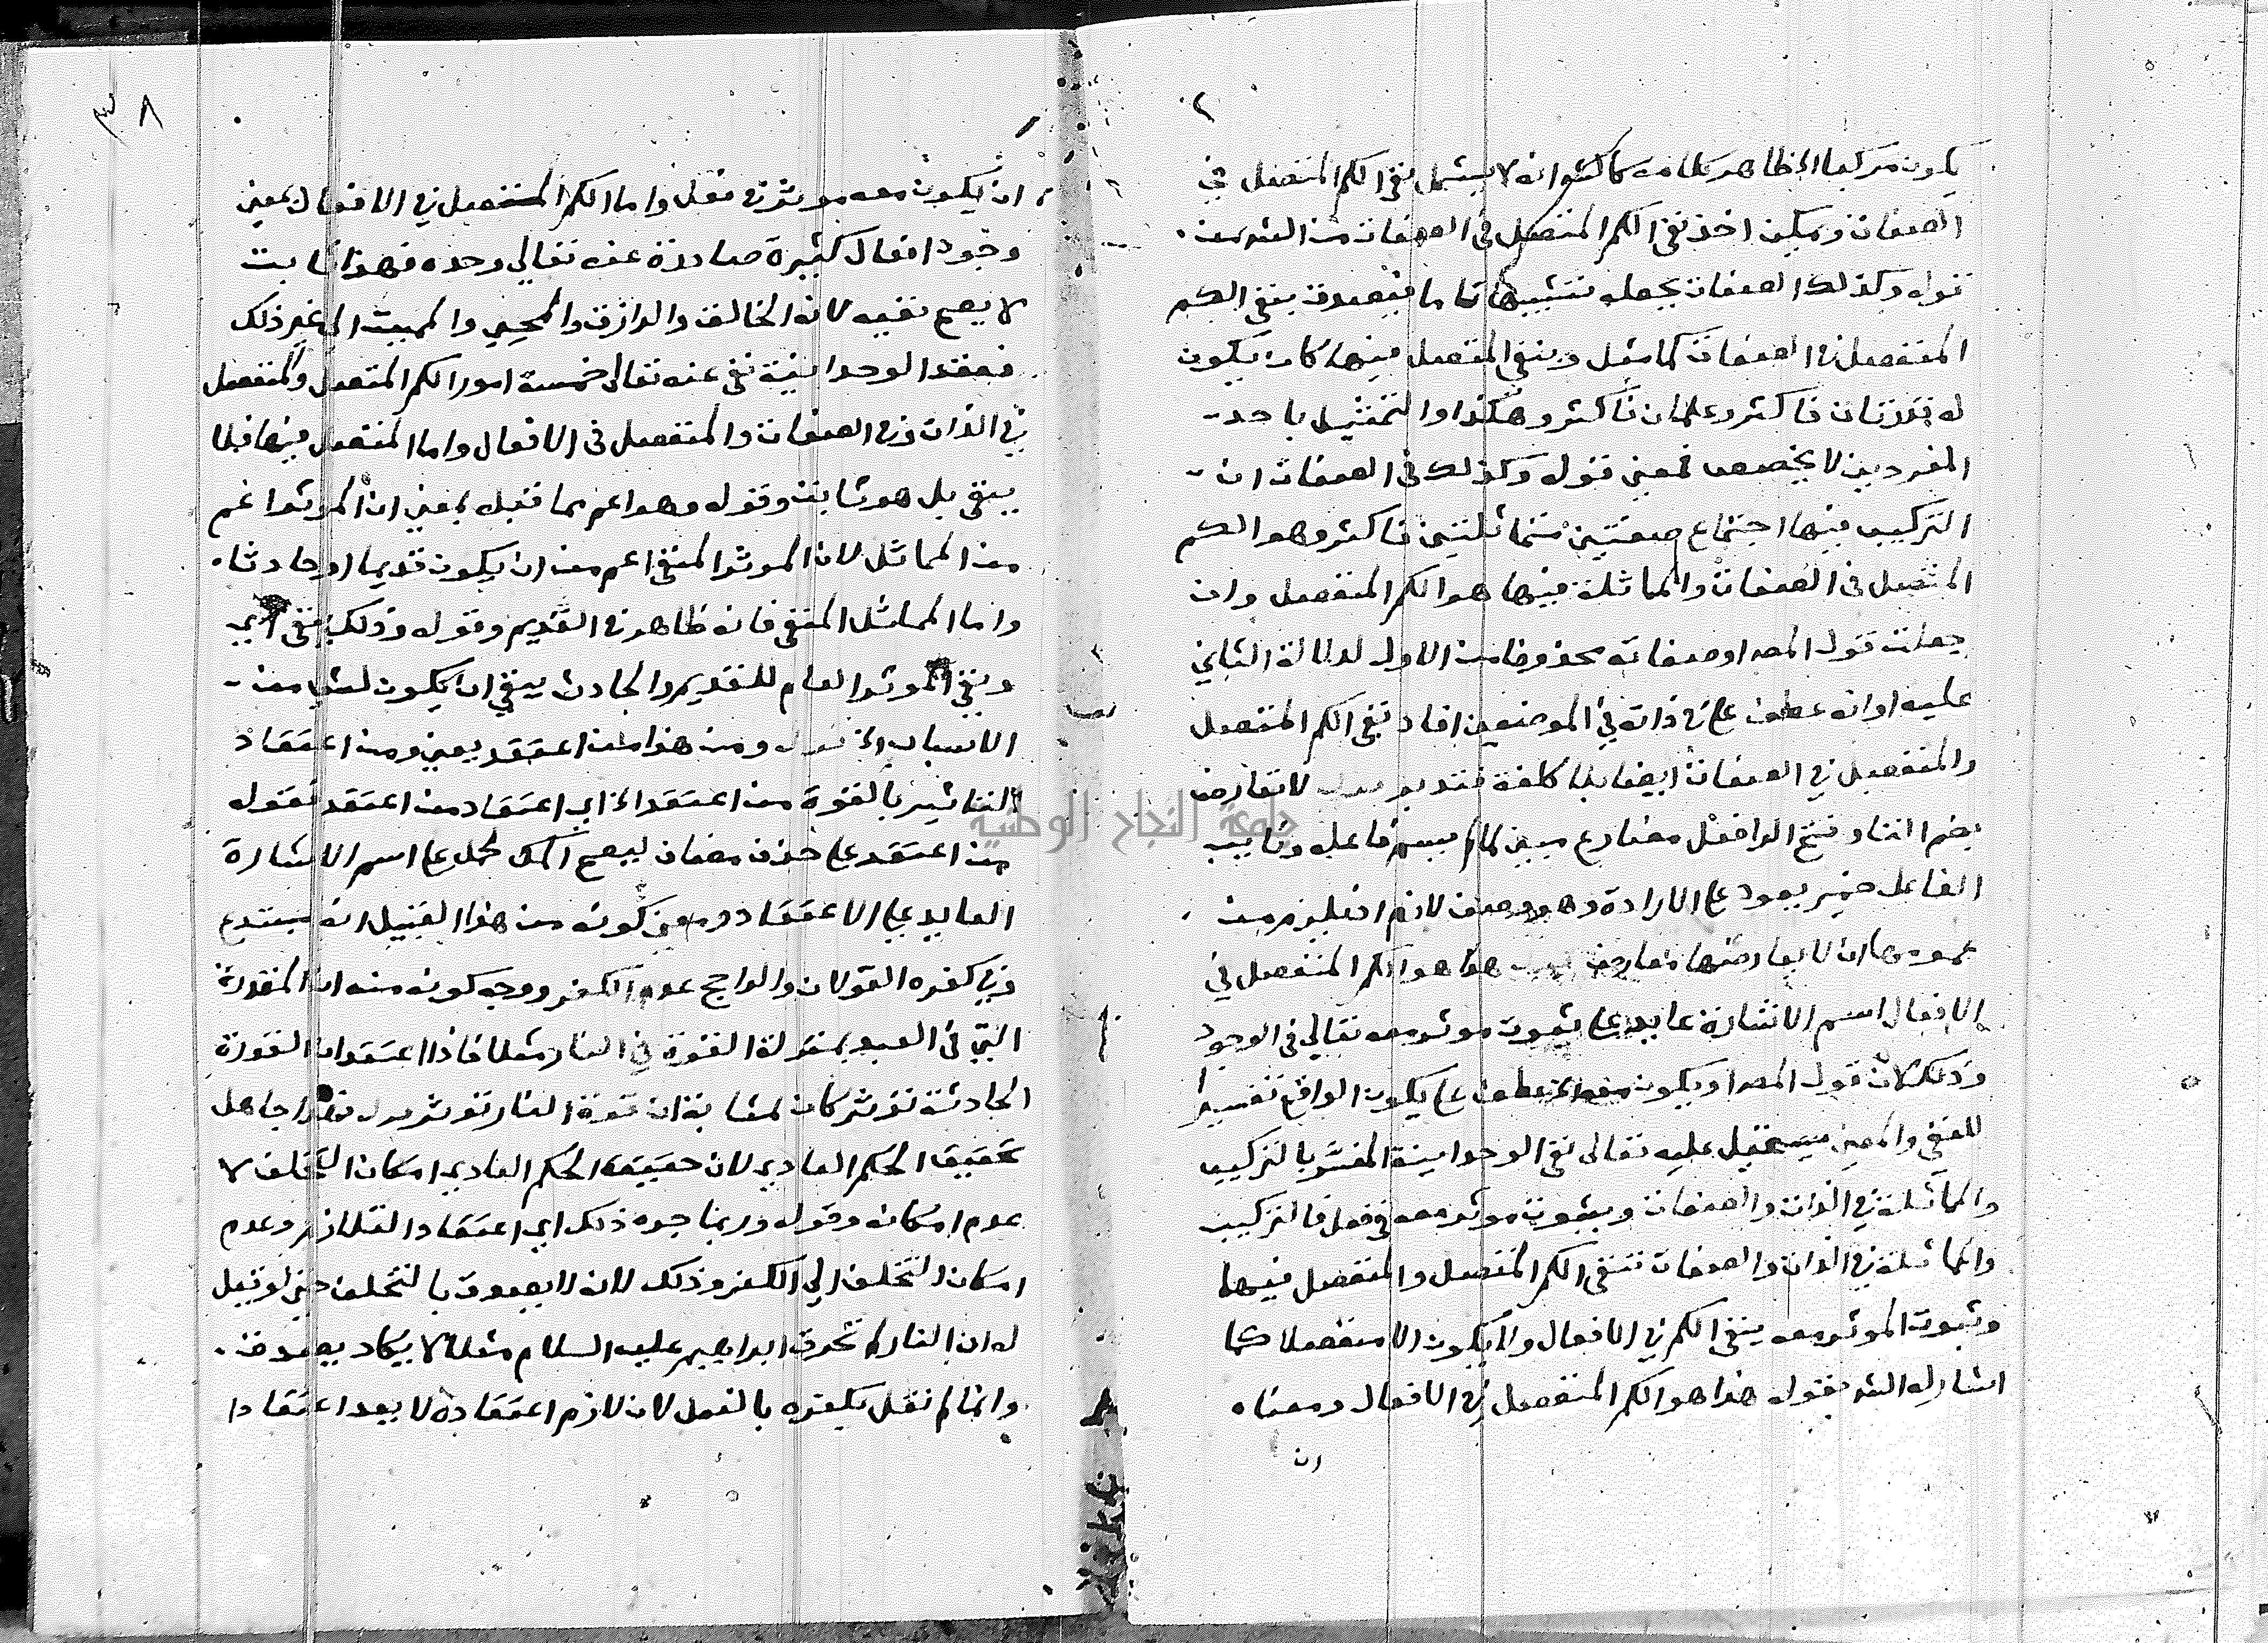 يكون مركبا الخ ظاهر كلامه كالشر انه لا يشمل نفي الكم المنفصل في
الصفات ويمكن اخذ نفي الكم المنفصل في الصفات من
قوله وكذلك الصفات بجعله تشبيها تاما فيصدق بنفي الكم
المنفصل في الصفات كما مثل وبنفي المتصل فيها كان يكون
له قدرتان فاكثر وعلمان فاكثر وهكذا والتمثيل باحد
المفردين لا يخصص فمعنى قوله وكذلك في الصفات ان
التركيب فيها اجتماع صفتين متماثلتين فاكثر وهو الكم
المتصل في الصفات والمماثلة فيها هو الكم المنفصل وان
جعلت قول المص او صفاته محذوفا من الاول لدلالة الثاني
عليه او انه عطف على في ذاته في الموضعين افاد نفي الكم المتصل
والمنفصل في الصفات ايضا بلا كلفة فتدبر قوله لا تعارض
بضم التاء وفتح الراء فعل مضارع مبني لما لم يسم فاعله ونايب
الفاعل ضمير يعود على الارادة وهو وصف لازم اذ يلزم من
عمومها ان لا يعارضها معارض قوله هذا هو الكم المنفصل في
الافعال اسم الاشارة عايد على ثبوت موثر معه تعالى في الوجود
وذلك لان قول المص او يكون معه الخ عطف على يكون الواقع تفسيرا
للمنفي والمعنى يستحيل عليه تعالى نفي الوحدانية المفسر بالتركيب
والمماثلة في الذات والصفات وبثبوت موثر معه في فعل فالتركيب
والمماثلة في الذات والصفات تنفي الكم المتصل والمنفصل فيها
وثبوت الموثر معه ينفي الكم في الافعال ولا يكون الا منفصلا كما
اشار له الش بقوله هذا هو الكم المنفصل في الافعال ومعناه
ان
ان يكون معه موثر في فعل واما الكم المنفصل في الافعال بمعنى
وجود افعال كثيرة صادرة عنه تعالى وحده فهو ثابت
لا يصح نفيه لانه الخالق والرازق والمحيي والمميت الى غير ذلك
فعقد الوحدانية نفى عنه تعالى خمسة امور الكم المتصل والمنفصل
في الذات وفي الصفات والمنفصل في الافعال واما المتصل فيها فلا
ينفى بل هو ثابت وقوله وهو اعم مما قبله بمعنى ان الموثر اعم
من المماثل لان الموثر المنفي اعم من ان يكون قديما او حادثا
واما المماثل المنفي فانه ظاهر في القديم وقوله وذلك ينفي اي
ونفي الموثر العام للقديم والحادث ينفي ان يكون لشي من
الاسباب الخ قوله ومن هذا من اعتقد يعني ومن اعتقاد
التاثير بالقوة من اعتقد الخ اي اعتقاد من اعتقد فقوله
من اعتقد على حذف مضاف ليصح الحمل على اسم الاشارة
العايد على الاعتقاد ومعنى كونه من هذا القبيل انه مبتدع
وفي كفره القولان والراجح عدم الكفر ووجه كونه منه ان القدرة
التي في العبد بمنزلة القوة في النار مثلا فاذا اعتقد ان القدرة
الحادثة توثر كان لمثابة ان قوة النار توثر قوله فهذا جاهل
بحقيقة الحكم العادي لان حقيقة الحكم العادي امكان التخلف لا
عدم امكانه وقوله وربما جره ذلك اي اعتقاد التلازم وعدم
امكان التخلف الى الكفر وذلك لانه لا يصدق بالتخلف حتى لو قيل
له ان النار لم تحرق ابراهيم عليه السلام مثلا لا يكاد يصدق
وانما لم نقل بكفره بالفعل لان لازم اعتقاده لا يعد اعتقادا
جامعة النجاح الوطنية